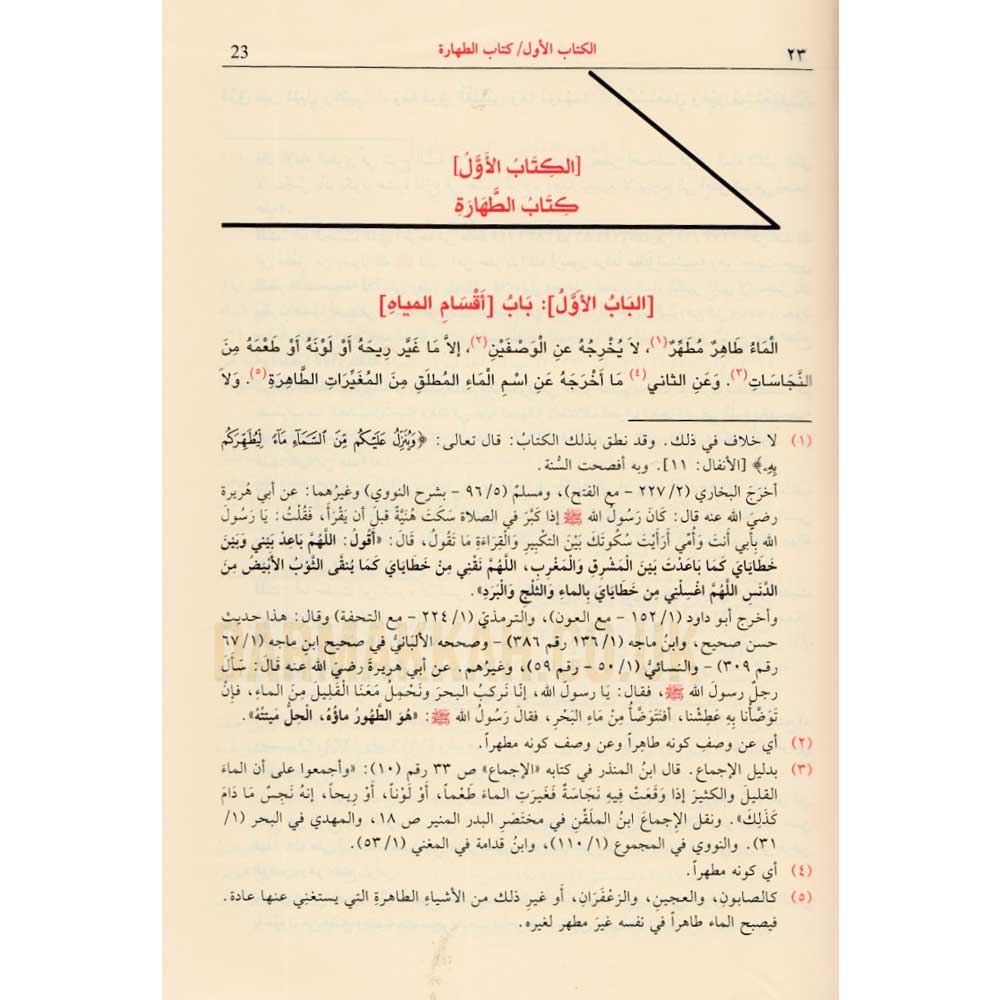 ٢٣ الكتاب الأول/ كتاب الطهارة 23
[الكِتَابُ الأَوَّلُ]
كِتَابُ الطَّهَارَةِ
[البَابُ الأَوَّلُ]: بَابُ [أَقْسَامِ المياهِ]
الْمَاءُ طَاهِرٌ مُطَهِّرٌ(١)، لاَ يُخْرِجُهُ عنِ الْوَصْفَيْنِ(٢)، إلاَّ مَا غَيَّر رِيحَهُ أَوْ لَوْنَهُ أَوْ طَعْمَهُ مِنَ
النَّجَاسَاتِ(٣). وَعَنِ الثاني(٤) مَا أَخْرَجَهُ عَنِ اسْمِ الْمَاءِ المُطلَقِ مِنَ المُغَيِّرَاتِ الطَّاهِرَةِ(٥). وَلاَ
(١) لا خلاف في ذلك. وقد نطق بذلك الكتابُ: قال تعالى: ﴿وَيُنَزِّلُ عَلَيْكُم مِّنَ السَّمَآءِ مَآءً لِّيُطَهِّرَكُم
بِهِۦ﴾ [الأنفال: ١١]. وبه أفصحت السُّنة.
أخرَجَ البخاري (٢/ ٢٢٧ - مع الفتح)، ومسلمٌ (٥/ ٩٦ - بشرح النووي) وغيرُهما: عن أبي هُريرة
رضيَ الله عنه قال: كَانَ رَسُولُ الله ﷺ إذا كَبَّرَ في الصلاة سَكَتَ هُنَيَّةً قبلَ أن يَقْرَأَ، فَقُلْتُ: يَا رَسُولَ
الله بِأَبي أَنتَ وَأُمِّي أَرَأَيْتَ سُكُوتَكَ بَيْنَ التَّكْبِيرِ وَالْقِرَاءَةِ مَا تَقُولُ، قَالَ: «أَقُولُ: اللَّهُمَّ بَاعِدْ بَيْنِي وَبَينَ
خَطَايَايَ كَمَا بَاعَدْتَ بَيْنَ الْمَشْرِقِ وَالْمَغْرِبِ، اللَّهُمَّ نَقِّنِي مِنْ خَطَايَايَ كَمَا يُنقَّى الثَّوْبُ الأَبْيَضُ مِنَ
الدَّنَسِ اللَّهُمَّ اغْسِلْنِي مِن خَطَايَايَ بِالماءِ وَالثلْجِ وَالْبَرَدِ».
وأخرج أبو داود (١/ ١٥٢ - مع العون)، والترمذيّ (١/ ٢٢٤ - مع التحفة) وقال: هذا حديث
حسن صحيح، وابنُ ماجه (١/ ١٣٦ رقم ٣٨٦) - وصححه الألبانيُّ في صحيح ابنِ ماجه (١/ ٦٧
رقم ٣٠٩) - والنسائيُّ (١/ ٥٠ - رقم ٥٩)، وغيرُهم. عن أبي هريرةَ رضيَ الله عنه قالَ: سَأَلَ
رجلٌ رسولَ الله ﷺ، فقال: يَا رسولَ الله، إنَّا نَركَبُ البحرَ ونَحْمِلُ مَعَنَا الْقَلِيلَ مِنَ الماءِ، فَإنْ
تَوَضَّأْنا بِهِ عَطِشْنا، أَفَنَتَوَضَّأُ مِنْ مَاءِ الْبَحْرِ، فقالَ رَسُولُ الله ﷺ: «هُوَ الطَّهُورُ ماؤُهُ، الْحِلُّ مَيتتُهُ».
(٢) أي عن وصفِ كونه طاهِراً وعن وصف كونه مطهراً.
(٣) بدليل الإجماع. قال ابنُ المنذر في كتابه «الإجماع» ص ٣٣ رقم (١٠): «وأجمعوا على أن الماءَ
القليلَ والكثيرَ إذا وَقَعَتْ فِيهِ نَجَاسَةٌ فَغَيرَتِ الماءَ طَعْماً، أَوْ لَوْناً، أَوْ رِيحاً، إنهُ نَجِسٌ مَا دَامَ
كَذَلِكَ». ونقل الإجماعَ ابنُ الملَقّنِ في مختَصَرِ البدر المنير ص ١٨، والمهدي في البحر (١/
٣١). والنووي في المجموع (١/ ١١٠)، وابنُ قدامة في المغني (١/ ٥٣).
(٤) أي كونه مطهراً.
(٥) كالصابونِ، والعجينِ، والزعْفَرَانِ، أَو غيرِ ذلك من الأشياءِ الطاهرةِ التي يستغنِي عنها عادة.
فيصبح الماء طاهراً في نفسه غيرَ مطهر لغيره.